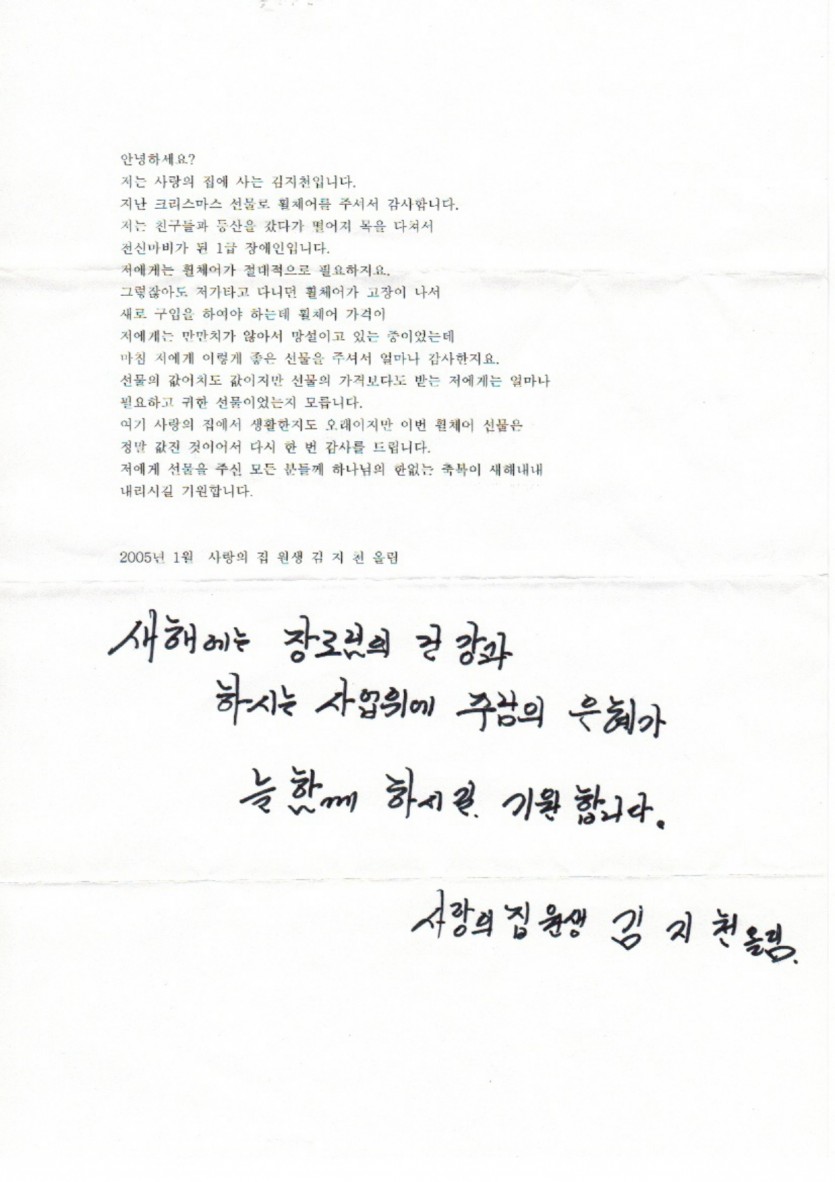 안녕하세요?
저는 사랑의 집에 사는 김지천입니다.
지난 크리스마스 선물로 휠체어를 주셔서 감사합니다.
저는 친구들과 등산을 갔다가 떨어지 목을 다쳐서
전신마비가 된 1급 장애인입니다.
저에게는 휠체어가 절대적으로 필요하지요.
그렇잖아도 저가타고 다니던 휠체어가 고장이 나서
새로 구입을 하여야 하는데 휠체어 가격이
저에게는 만만치가 않아서 망설이고 있는 중이었는데
마침 저에게 이렇게 좋은 선물을 주셔서 얼마나 감사한지요.
선물의 값어치도 값이지만 선물의 가격보다도 받는 저에게는 얼마나
필요하고 귀한 선물이었는지 모릅니다.
여기 사랑의 집에서 생활한지도 오래이지만 이번 휠체어 선물은
정말 값진 것이어서 다시 한 번 감사를 드립니다.
저에게 선물을 주신 모든 분들께 하나님의 한없는 축복이 새해내내
내리시길 기원합니다.
2005년 1월 사랑의 집 원생 김 지 천 올림
새해에는 장로님의 건강과
하시는 사업위에 주님의 은혜가
늘 함께 하시길 기원합니다.
사랑의 집 원생 김 지 천 올림.